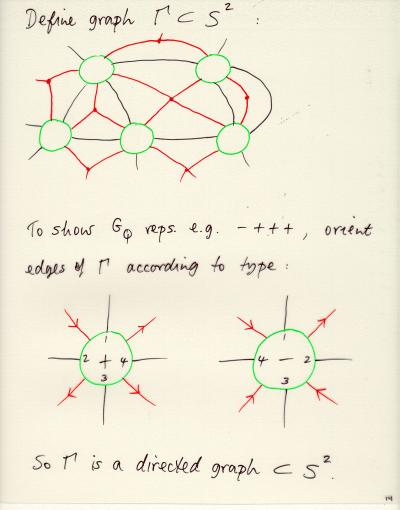 Define graph Γ ⊂ S² :
To show G_Q reps. e.g. - + + + , orient
edges of Γ according to type :
1
2 + 4
3
1
4 - 2
3
So Γ is a directed graph ⊂ S².
14